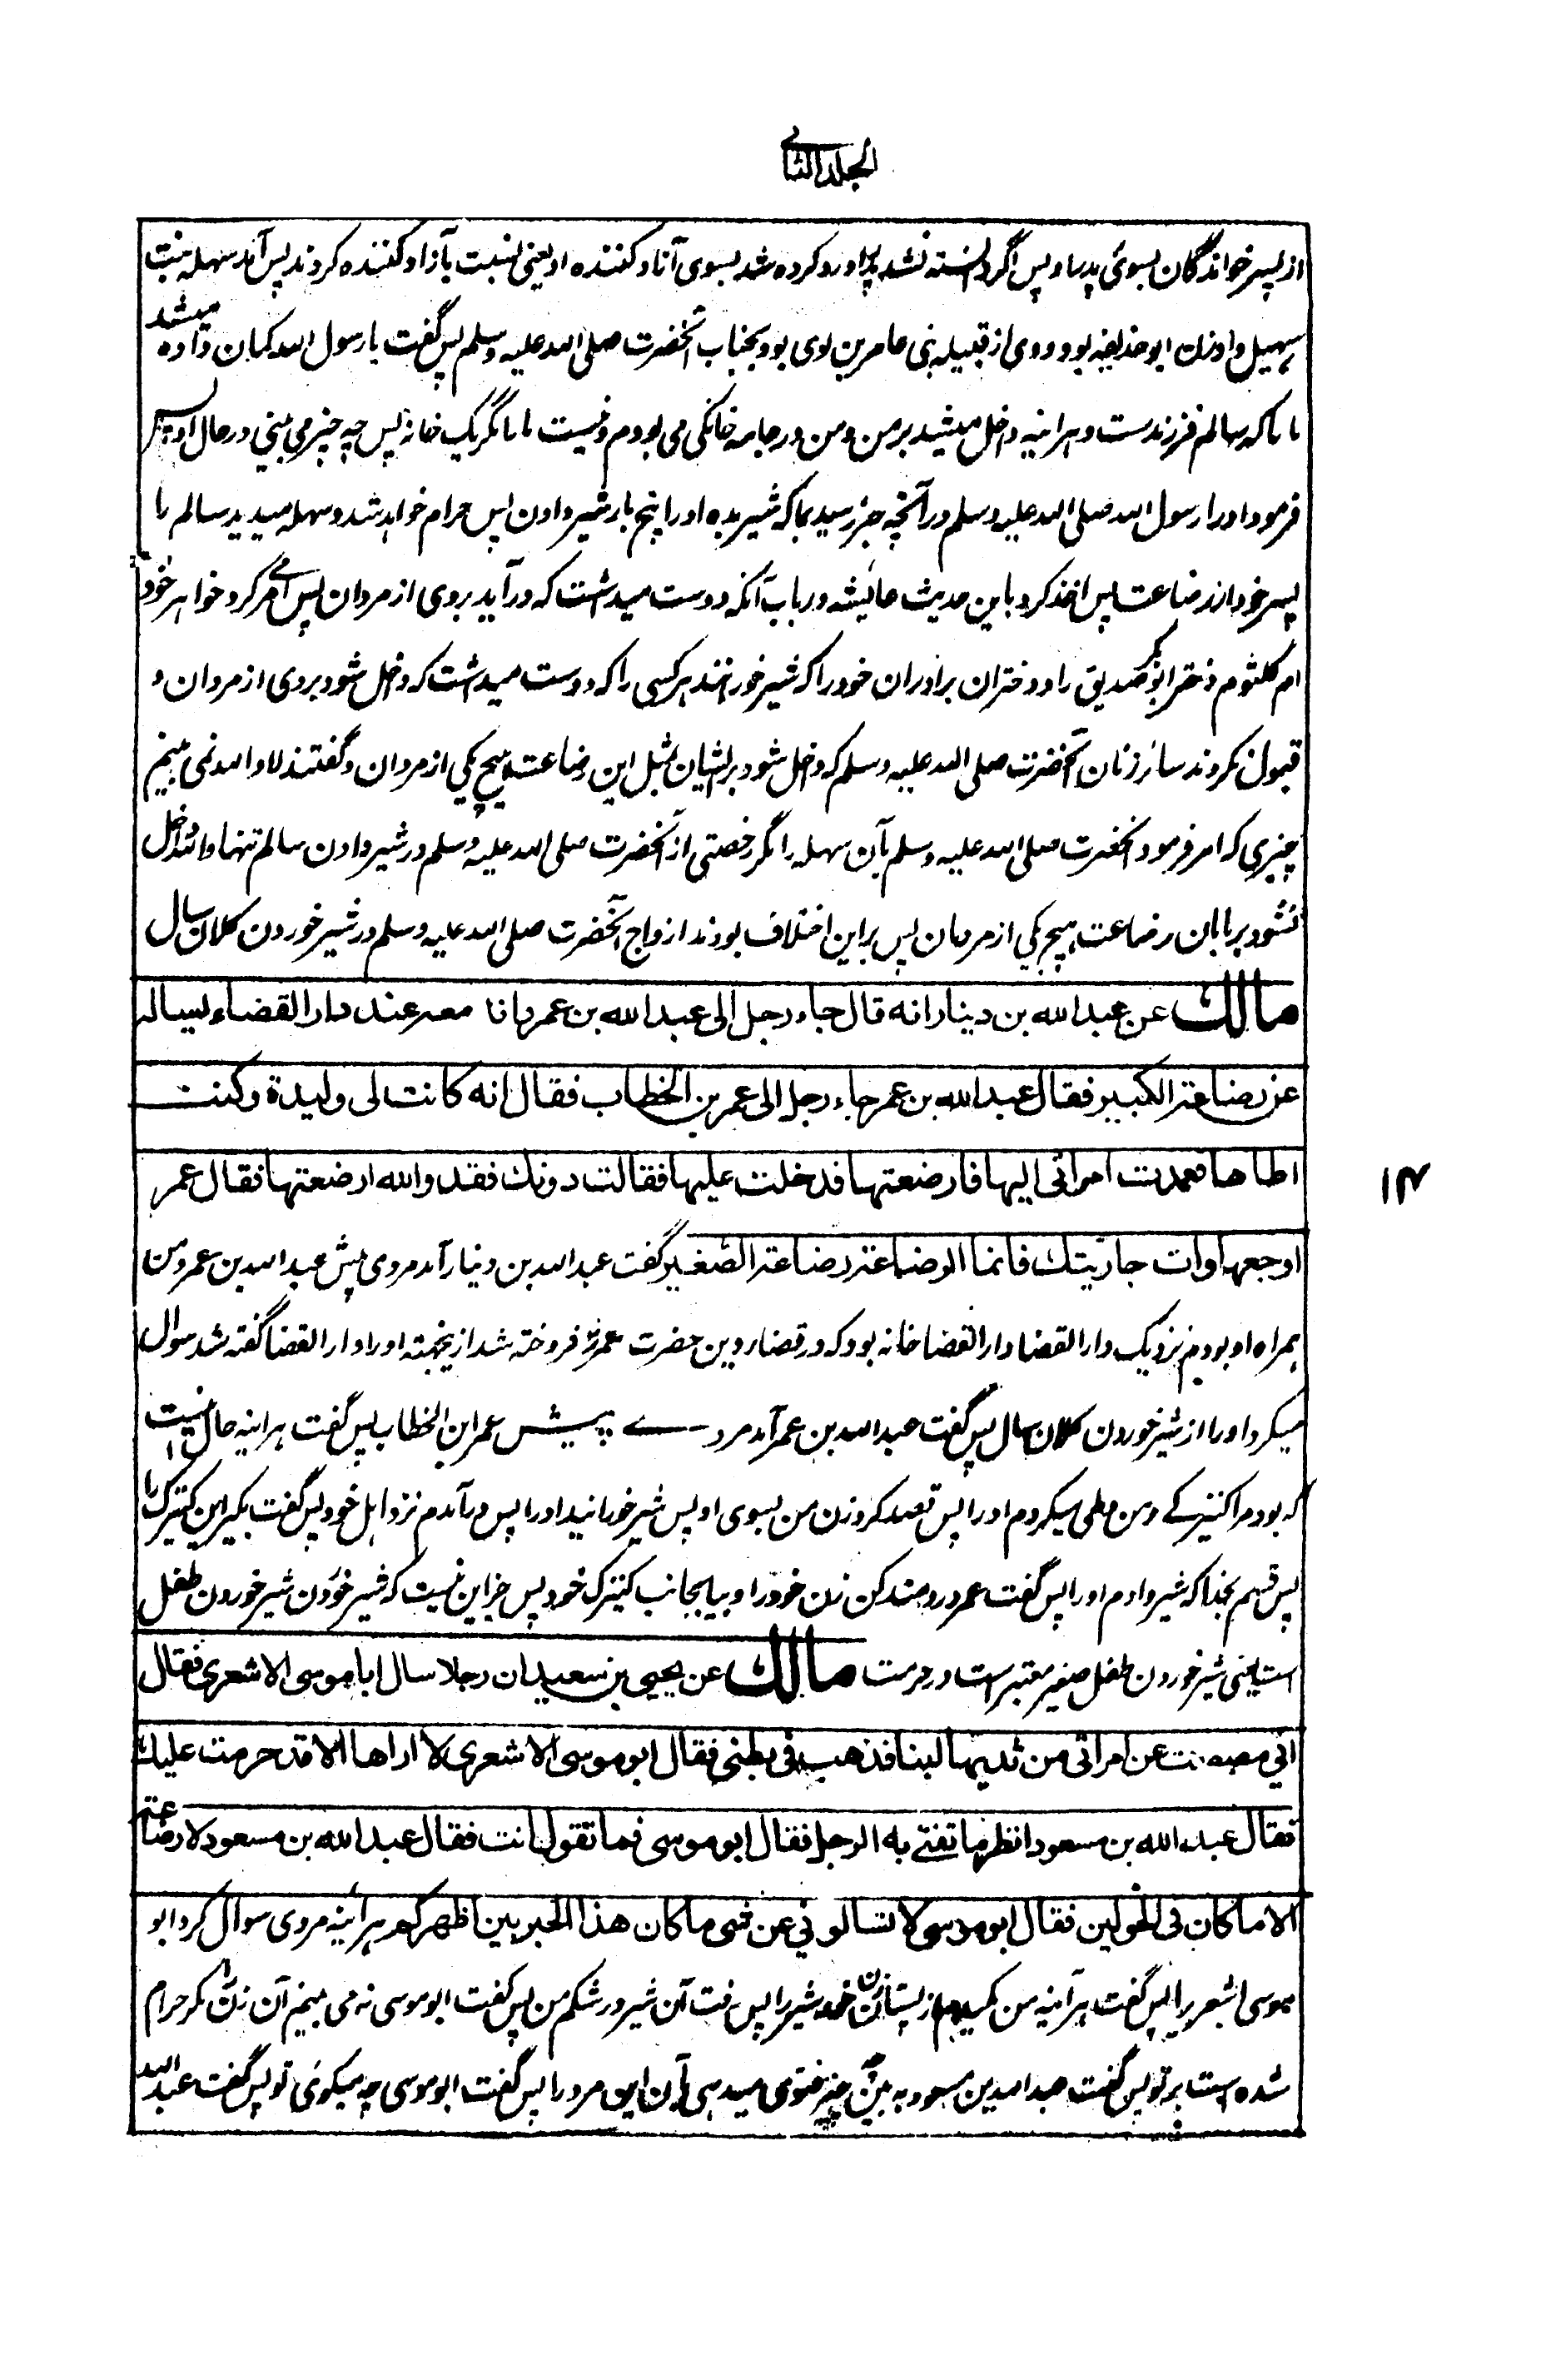 الجلد الثانی
از پسر خواندگان بسوی پدر او پس اگر دانسته نشد پدر او رد کرده شد بسوی آزاد کننده او یعنی نسبت بآزاد کننده کردند پس آمد سهله بنت
سهیل و او زن ابوحذیفه بود و وی از قبیله بنی عامر بن لوی بود بجناب آنحضرت صلی الله علیه وسلم پس گفت یا رسول الله گمان داده میشد
ما را که سالم فرزندست و هرآینه داخل میشد بر من و من در جامه خانگی می بودم و نیست ما را مگر یک خانه پس چه چیز می بینی در حال او پس
فرمود او را رسول الله صلی الله علیه وسلم در آنچه خبر رسید بما که شیر بده او را پنج بار شیر دادن پس حرام خواهد شد و سهله میدید سالم را
پسر خود از رضاعت پس اخذ کرد باین حدیث عائشه در باب آنکه دوست میداشت که در آید بر وی از مردان پس امر می کرد خواهر خود
ام کلثوم دختر ابوبکر صدیق را و دختران برادران خود را که شیر خورانند هر کسی را که دوست میداشت که داخل شود بر وی از مردان و
قبول نکردند سائر زنان آنحضرت صلی الله علیه وسلم که داخل شود بر ایشان بمثل این رضاعت هیچ یکی از مردان و گفتند لا والله نمی بینم
چیزی که امر فرمود آنحضرت صلی الله علیه وسلم بآن سهله را مگر رخصتی از آنحضرت صلی الله علیه وسلم در شیر دادن سالم تنها والله داخل
نشود بر ما باین رضاعت هیچ یکی از مردمان پس بر این اختلاف بودند ازواج آنحضرت صلی الله علیه وسلم در شیر خوردن کلان سال
مالك عن عبد الله بن دینار انه قال جاء رجل الی عبد الله بن عمر وانا معه عند دار القضاء یساله
عن رضاعة الکبیر فقال عبد الله بن عمر جاء رجل الی عمر بن الخطاب فقال انه کانت لی ولیدة وکنت
اطاها فعمدت امراتی الیها فارضعتها فدخلت علیها فقالت دونك فقد والله ارضعتها فقال عمر
اوجعها وات جاریتك فانما الرضاعة رضاعة الصغیر گفت عبد الله بن دینار آمد مردی پیش عبد الله بن عمر و من
همراه او بودیم نزدیک دار القضا دار القضا خانه بود که در قضاء دین حضرت عمرؓ فروخته شد ازینجهته او را دار القضا گفته شد سوال
میکرد او را از شیر خوردن کلان سال پس گفت عبد الله بن عمر آمد مردے پیش عمر بن الخطاب پس گفت هرآینه حال اینست
که بود مرا کنیزکے و من وطی میکردم او را پس قصد کرد زن من بسوی او پس شیر خورانید او را پس در آمدم نزد اهل خود پس گفت بگیر این کنیزک را
پس قسم بخدا که شیر دادم او را پس گفت عمر دردمند کن زن خود را و بیا بجانب کنیزک خود پس جز این نیست که شیر خوردن شیر خوردن طفل
است یعنی شیر خوردن طفل صغیر معتبر است در حرمت مالك عن یحیی بن سعید ان رجلا سال ابا موسی الاشعری فقال
انی مصصت عن امراتی من ثدیها لبنا فذهب فی بطنی فقال ابو موسی الاشعری لا اراها الا قد حرمت علیك
فقال عبد الله بن مسعود انظر ما تفتی به الرجل فقال ابو موسی فما تقول انت فقال عبد الله بن مسعود لا رضاعة
الا ما کان فی الحولین فقال ابو موسی لا تسالونی عن شی ما کان هذا الحبر بین اظهرکم هرآئینه مردی سوال کرد ابو
موسی اشعری را پس گفت هرآینه من مکیدم از پستان زن خود شیر را پس رفت آن شیر در شکم من پس گفت ابو موسی نه می بینم آن زن را مگر حرام
شده است بر تو پس گفت عبد الله بن مسعود به بین چه چیز فتوی میدهی بآن این مرد را پس گفت ابو موسی چه میگوئی تو پس گفت عبد الله
۱۴